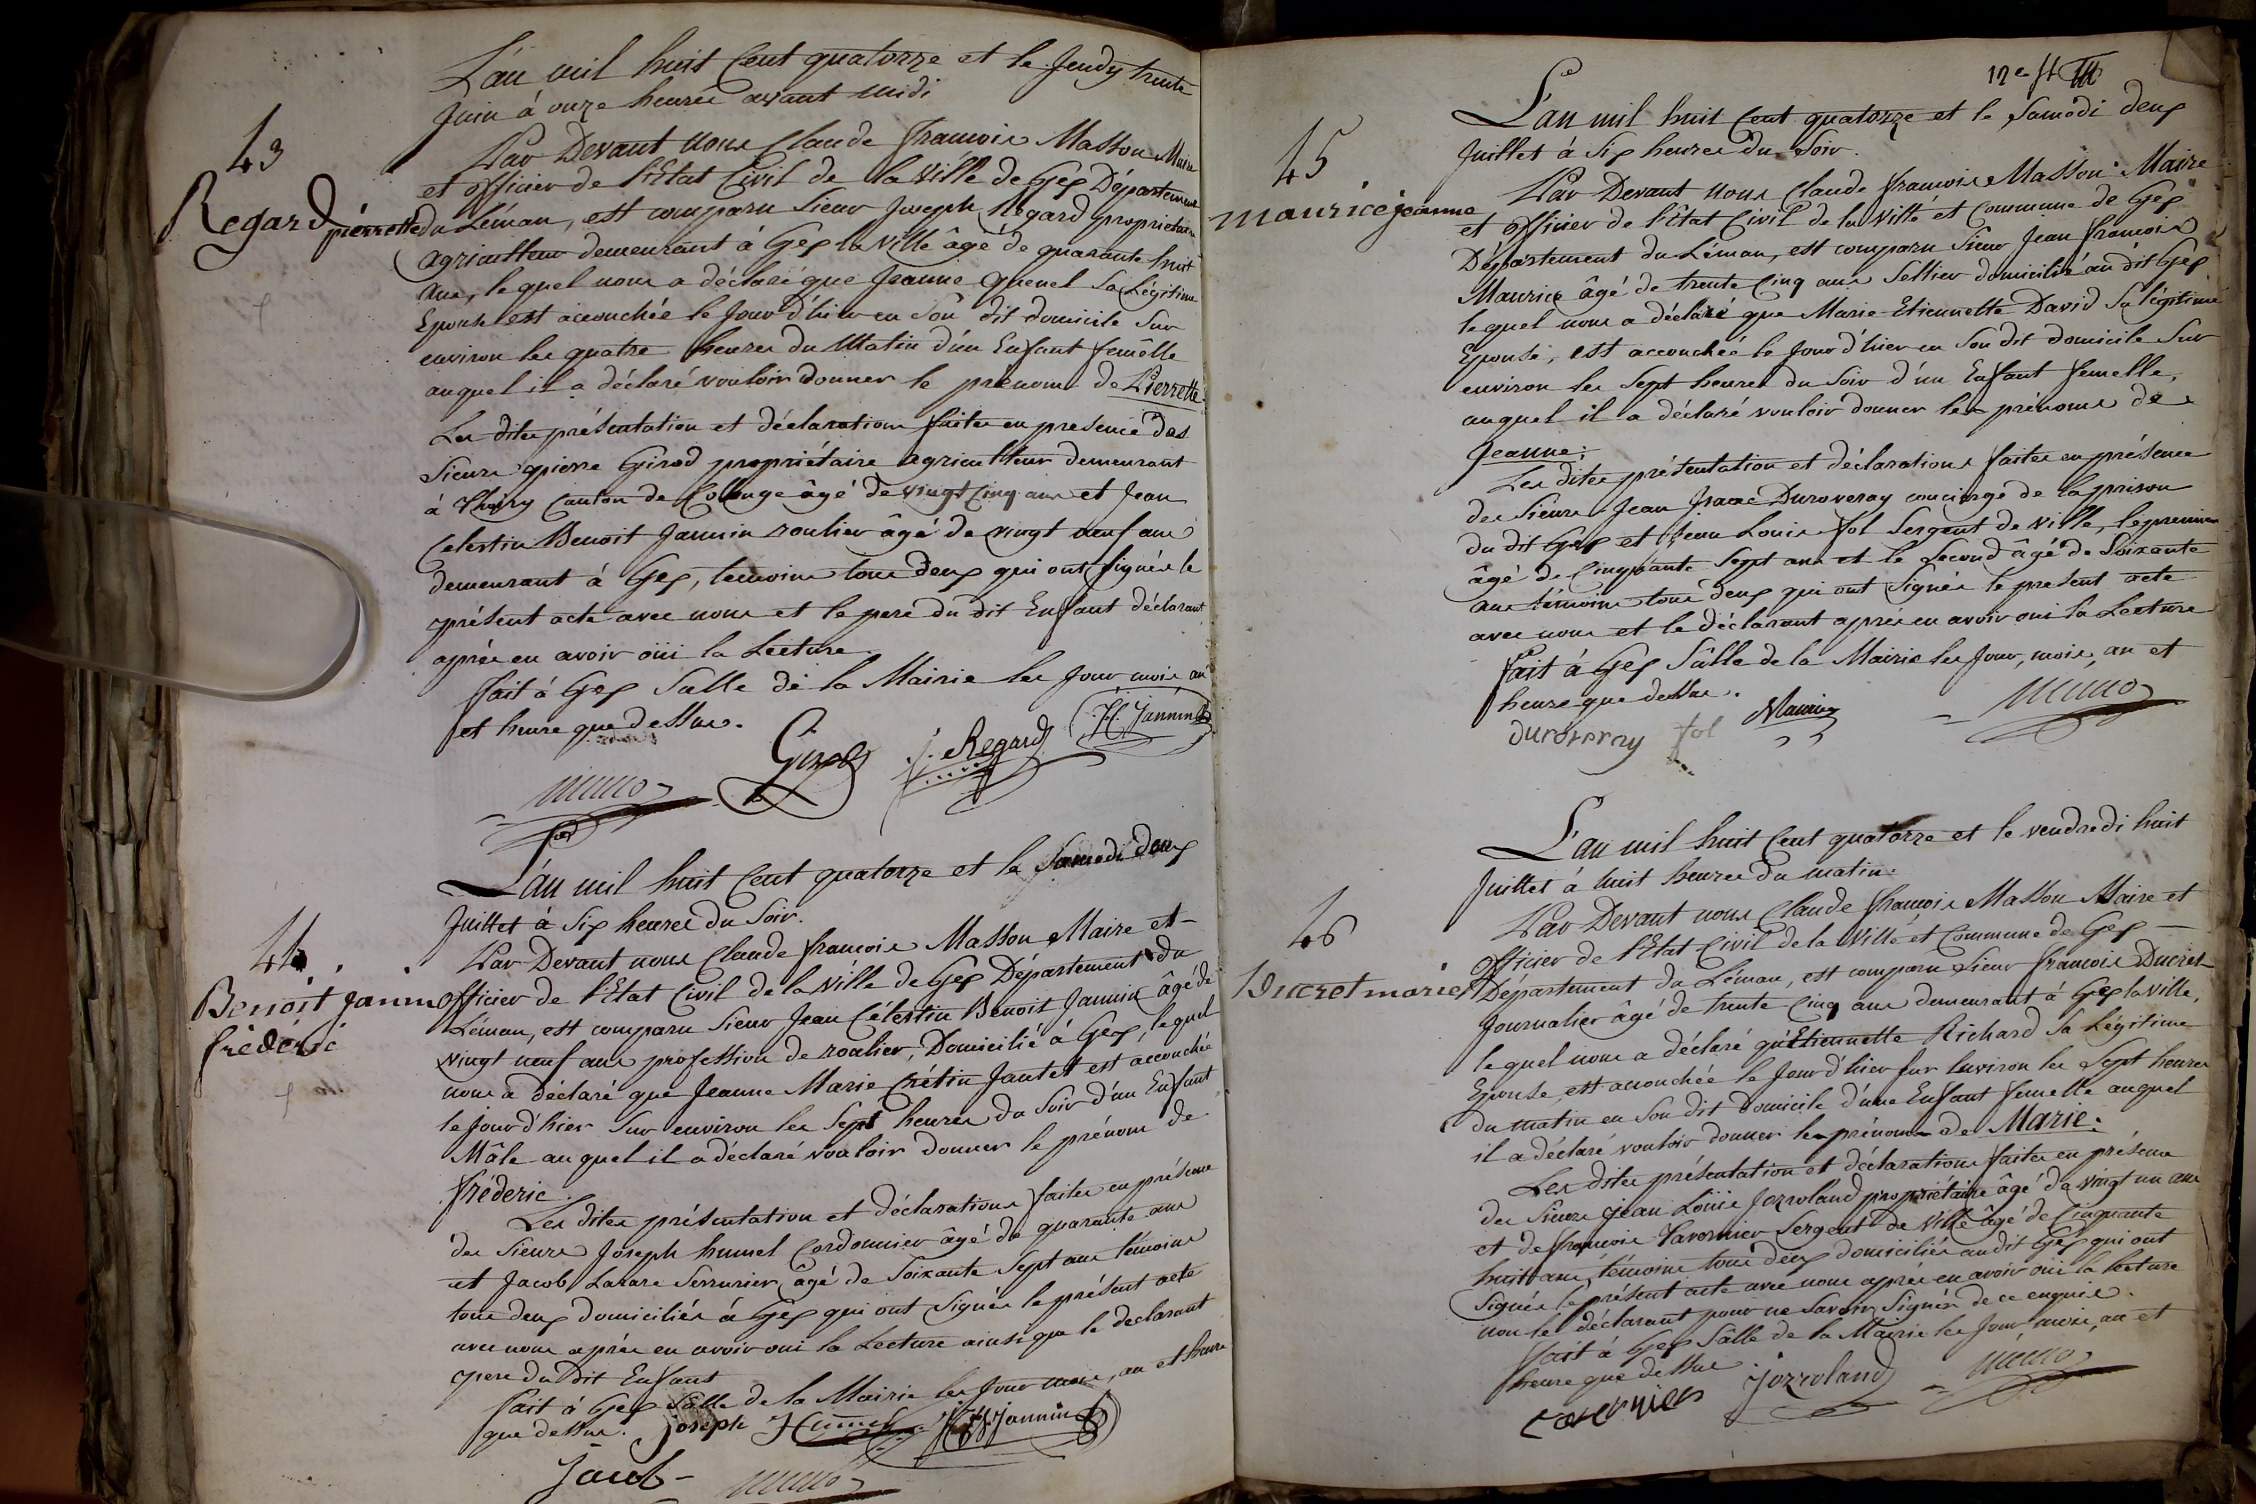 L'an mil huit Cent quatorze et le Jeudy trente
Juin à onze heures avant midi
43
Regard pierrette
Par Devant nous Claude François Masson Maire
et officier de l'Etat Civil de la Ville de Gex Département
du Léman, est comparu Sieur Joseph Regard propriétaire
agriculteur demeurant à Gex la Ville âgé de quarante huit
ans, lequel nous a déclaré que Jeanne quenel Sa Légitime
Epouse est accouchée le Jour d'hier en Son dit domicile Sur
environ les quatre heures du Matin d'un Enfant femelle
auquel il a déclaré vouloir donner le prénoms de Pierrette.
Les dites présentation et déclarations faites en presence des
Sieurs pierre Girod propriétaire agriculteur demeurant
à Canton de Collonge âgé de vingt Cinq ans et Jean
Celestin Benoit Jannin roulier âgé de vingt neuf ans
demeurant à Gex, temoins tous Deux qui ont signés le
présent acte avec nous et le pere du dit Enfant déclarant
après en avoir oüi la Lecture.
fait à Gex Salle de la Mairie les Jour mois an
et heure que dessus.
Girod J. Regard Jannin
L'an mil huit Cent quatorze et le Samedi deux
Juillet à Six heures du Soir.
44
Benoit Janin
fréderic
Par Devant nous Claude françois Masson Maire et
officier de l'Etat Civil de la Ville de Gex Département du
Léman, est comparu Sieur Jean Célestin Benoit Jannin âgé de
vingt neuf ans profession de roulier, Domicilié à Gex, lequel
nous a déclaré que Jeanne Marie Crétin Jantet est accouchée
le jour d'hier Sur environ les Sept heures du Soir d'un Enfant
Mâle auquel il a déclaré vouloir donner le prénom de
fréderic.
Les dites présentation et déclarations faites en présence
des Sieurs Joseph humel Cordonnier âgé de quarante ans
et Jacob Lazare Serrurier âgé de Soixante Sept ans témoins
tous deux domiciliés à Gex qui ont Signés le présent acte
avec nous après en avoir oui la Lecture ainsi que le déclarant
pere du Dit Enfant
fait à Gex Salle de la Mairie les Jour mois, an et heure
que dessus. joseph Humel Jannin
Jacob
12e ft
L'an mil huit Cent quatorze et le Samedi deux
Juillet à Six heures du Soir.
45
maurice jeanne
Par Devant nous Claude françois Masson Maire
et officier de l'État Civil de la Ville et Commune de Gex
Département du Léman, est comparu Sieur Jean françois
Maurice âgé de trente Cinq ans Sellier domicilié au dit Gex
lequel nous a déclaré que Marie Etiennette David Sa légitime
Epouse, est accouchée le Jour d'hier en Son dit domicile Sur
environ les Sept heures du Soir d'un Enfant femelle,
auquel il a déclaré vouloir donner les prénoms de
Jeanne;
Les dites présentation et déclarations faites en présence
des Sieurs Jean Isaac Duroveray concierge de la prison
du dit Gex et Jean Louis fol Sergent de Ville, le premier
âgé de Cinquante Sept ans et le Second âgé de Soixante
ans témoins tous deux qui ont signés le present acte
avec nous et le déclarant après en avoir oui la Lecture
fait à Gex Sâlle de la Mairie les Jour, mois, an et
heure que dessus.
duroveray fol Maurice
L'an mil huit Cent quatorze et le vendredi huit
Juillet à huit heures du matin.
46
Ducret marie
Par Devant nous Claude françois Masson Maire et
officier de l'Etat Civil de la Ville et Commune de Gex
Département du Léman, est comparu Sieur françois Ducret
Journalier âgé de trente Cinq ans demeurant à Gex la Ville,
lequel nous a déclaré qu'Etiennette Richard Sa Légitime
Epouse, est accouchée le Jour d'hier sur Environ les Sept heures
du matin en Son dit Domicile d'une Enfant femelle auquel
il a déclaré vouloir donner le prénom de Marie.
Les dites présentation et déclarations faites en présence
des Sieurs jean Loüis Jozroland propriétaire âgé de vingt un ans
et de françois Tavernier Sergent de Ville âgé de Cinquante
huit ans, témoins tous deux domiciliés audit Gex qui ont
Signés le présent acte avec nous après en avoir oüi la lecture
non le déclarant pour ne Savoir Signer de ce enquis.
fait à Gex Sâlle de la Mairie les Jour, mois, an et
heure que dessus
jozroland